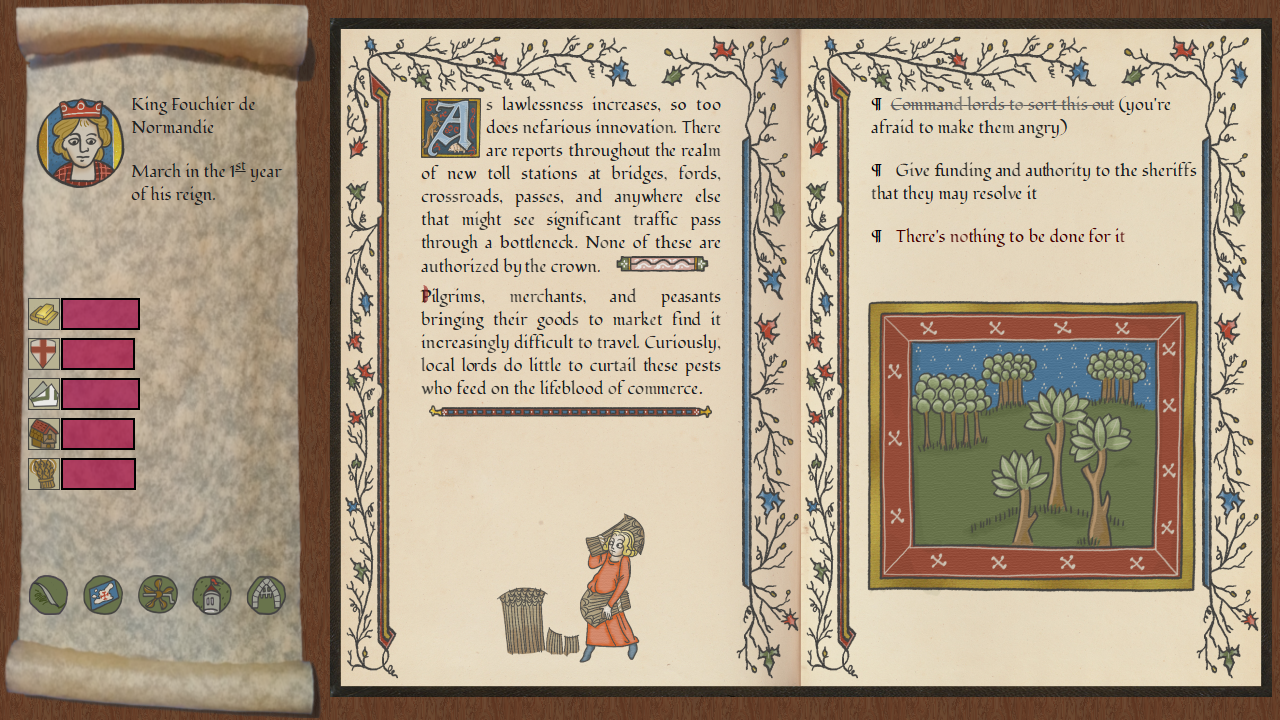 King Fouchier de
Normandie
March in the 1st year
of his reign.
As lawlessness increases, so too
does nefarious innovation. There
are reports throughout the realm
of new toll stations at bridges, fords,
crossroads, passes, and anywhere else
that might see significant traffic pass
through a bottleneck. None of these are
authorized by the crown.
Pilgrims, merchants, and peasants
bringing their goods to market find it
increasingly difficult to travel. Curiously,
local lords do little to curtail these pests
who feed on the lifeblood of commerce.
¶ Command lords to sort this out (you're
afraid to make them angry)
¶ Give funding and authority to the sheriffs
that they may resolve it
¶ There's nothing to be done for it